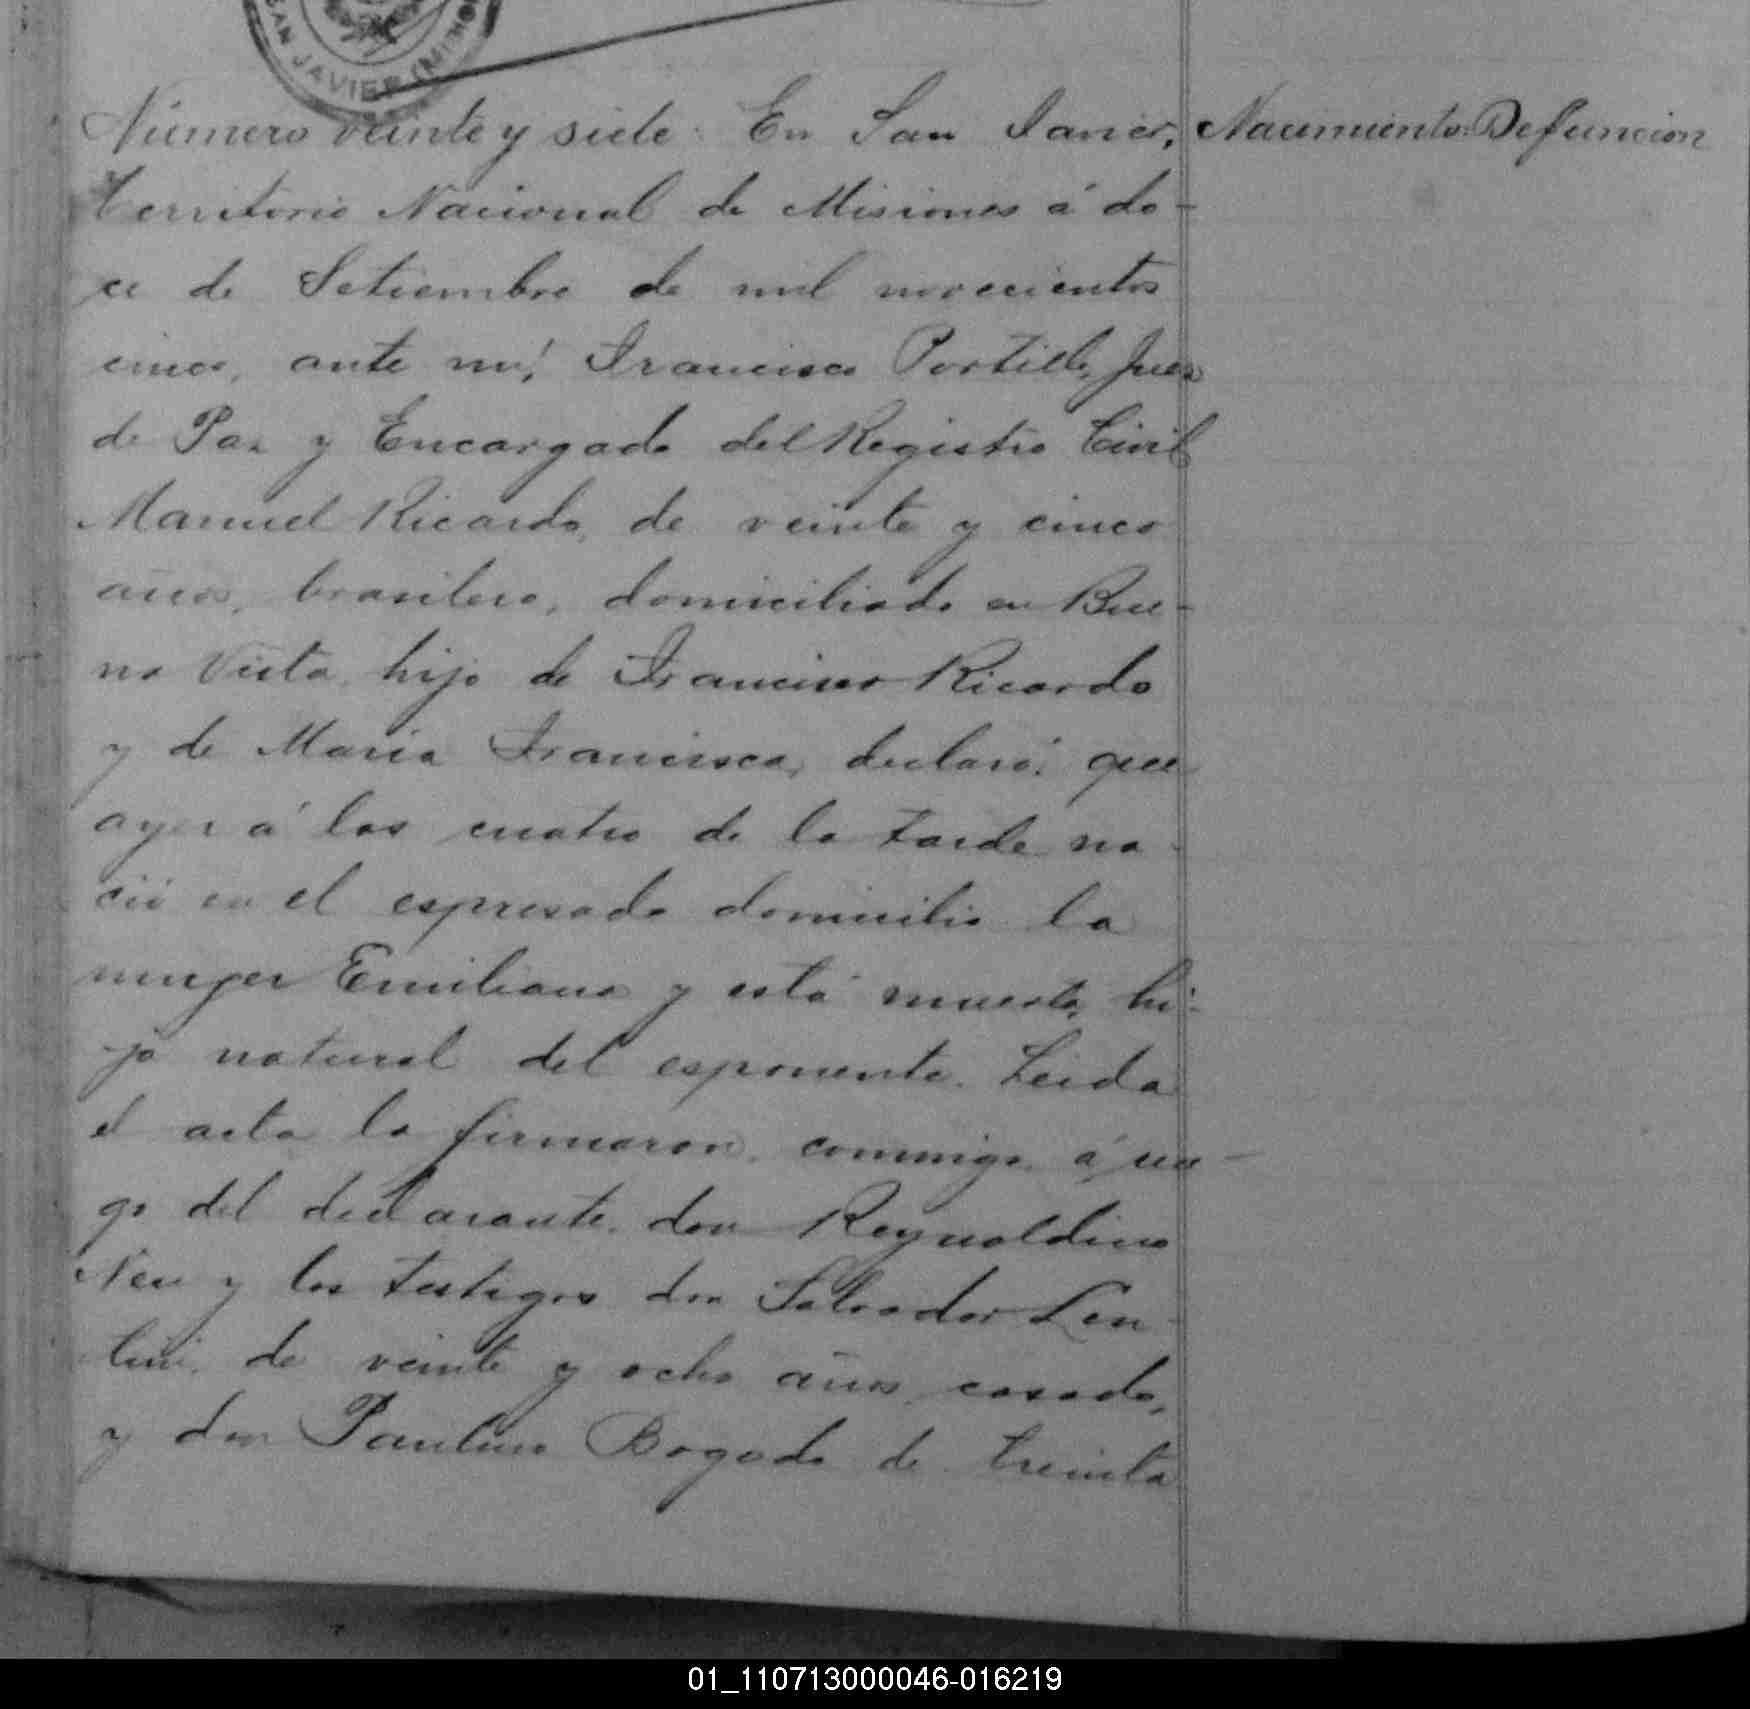 SAN JAVIER (MISIO
Número veinte y siete: En San Javier, Nacimiento: Defuncion
Territorio Nacional de Misiones á do-
ce de Setiembre de mil novecientos
cinco, ante mí, Francisco Portillo, Juez
de Paz y Encargado del Registro Civil
Manuel Ricardo, de veinte y cinco
años, brasilero, domiciliado en Bue-
na Vista, hijo de Francisco Ricardo
y de Maria Francisca, declaró: que
ayer á las cuatro de la tarde na-
ció en el espresado domicilio la
mujer Emiliana y está muerta, hi-
ja natural del esponente. Leida
el acta la firmaron conmigo, á rue-
go del declarante don Reynoldino
y los testigos don Salvador Len-
tini, de veinte y ocho años, casado,
y don Paulino Bogado de treinta
01_110713000046-016219